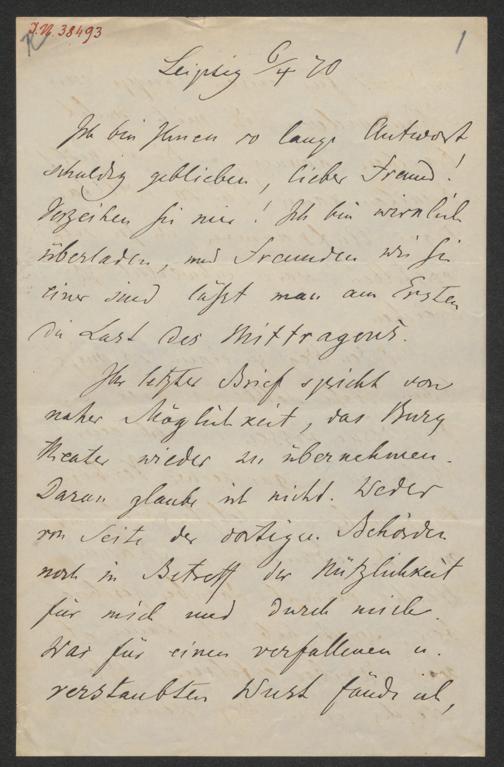 I.N. 38493
1
Leipzig 6/4 70
Ich bin Ihnen so lange Antwort
schuldig geblieben, lieber Freund!
Verzeihen Sie mir! Ich bin wirklich
überladen, und Freunden wie Sie
einer sind läßt man am Ersten
die Last des Mittragens.
Ihr letzter Brief spricht von
naher Möglichkeit, das Burg
theater wieder zu übernehmen.
Daran glaube ich nicht. Weder
von Seite der dortigen Behörden
noch in Betreff der Nützlichkeit
für mich und durch mich.
Was für einen verfallenen u.
verstaubten Wust fände ich,